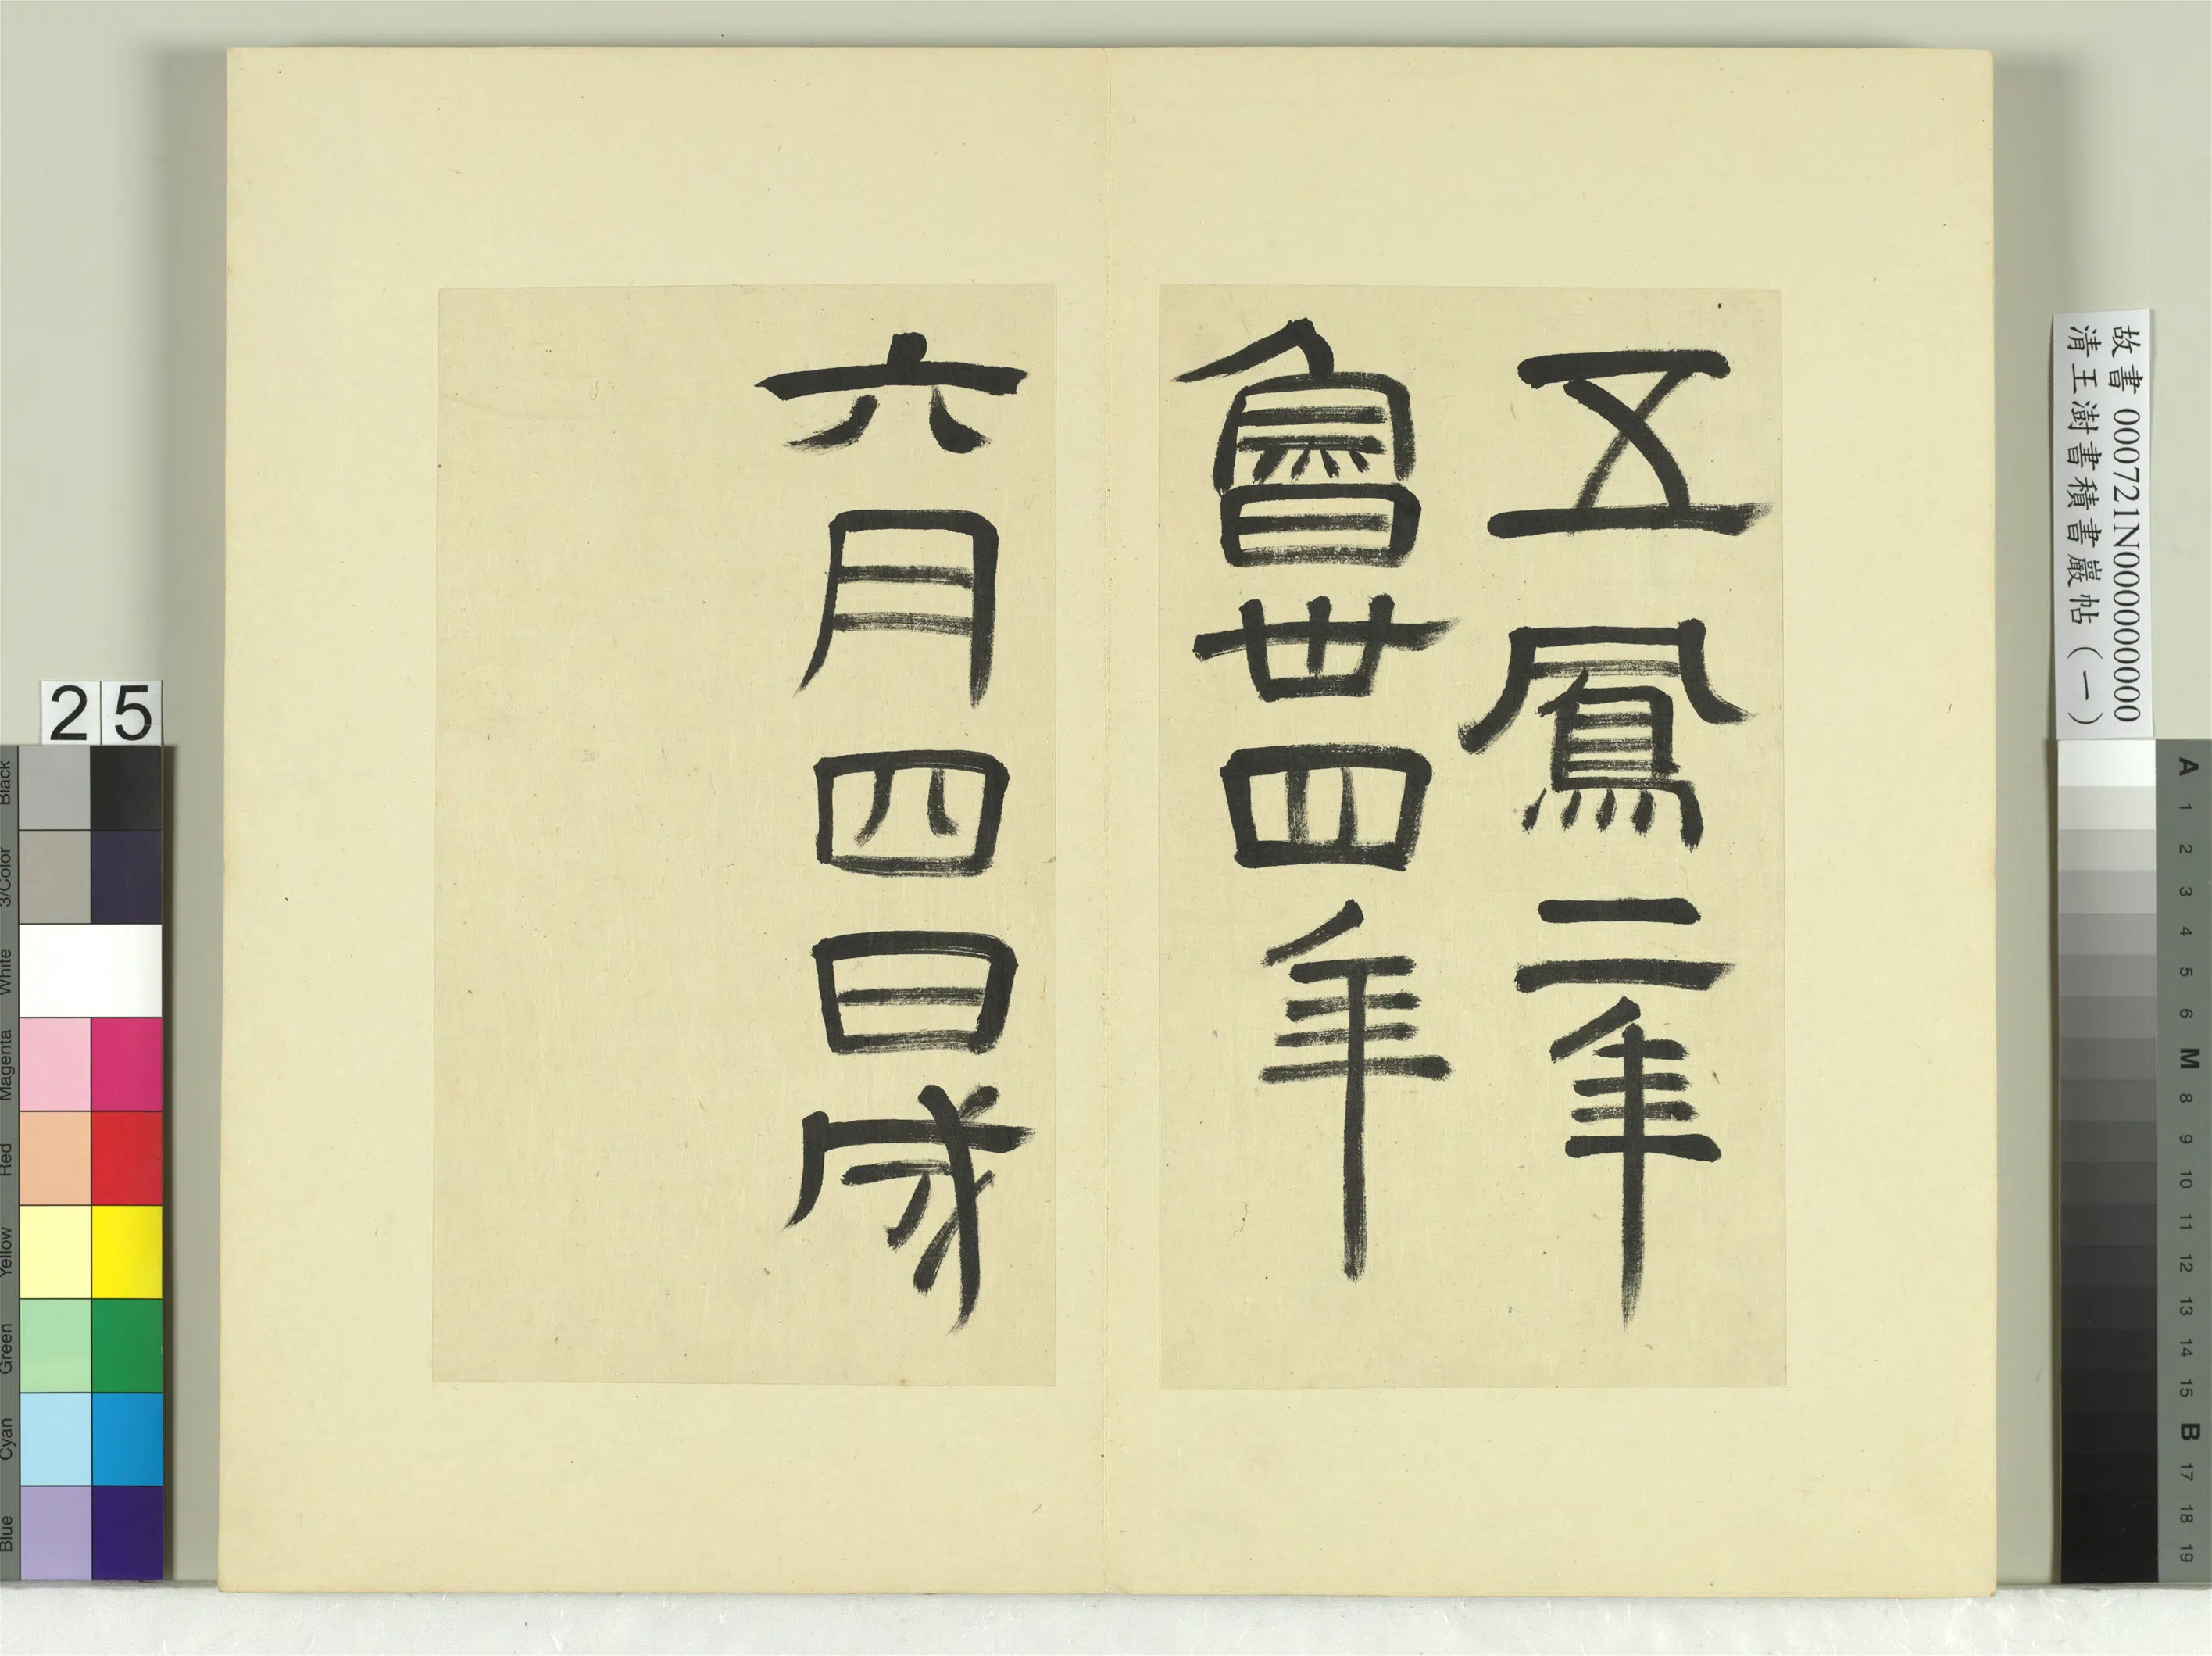 五鳳二年
魯卅四年
六月四日成
故書 000721N000000000
清王澍書積書巖帖（一）
25
Black
3/Color
White
Magenta
Red
Yellow
Green
Cyan
Blue
A
1
2
3
4
5
6
M
8
9
10
11
12
13
14
15
B
17
18
19